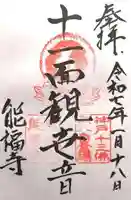 奉拝
令和七年一月十八日
十一面観世音
能福寺
神戸十三佛